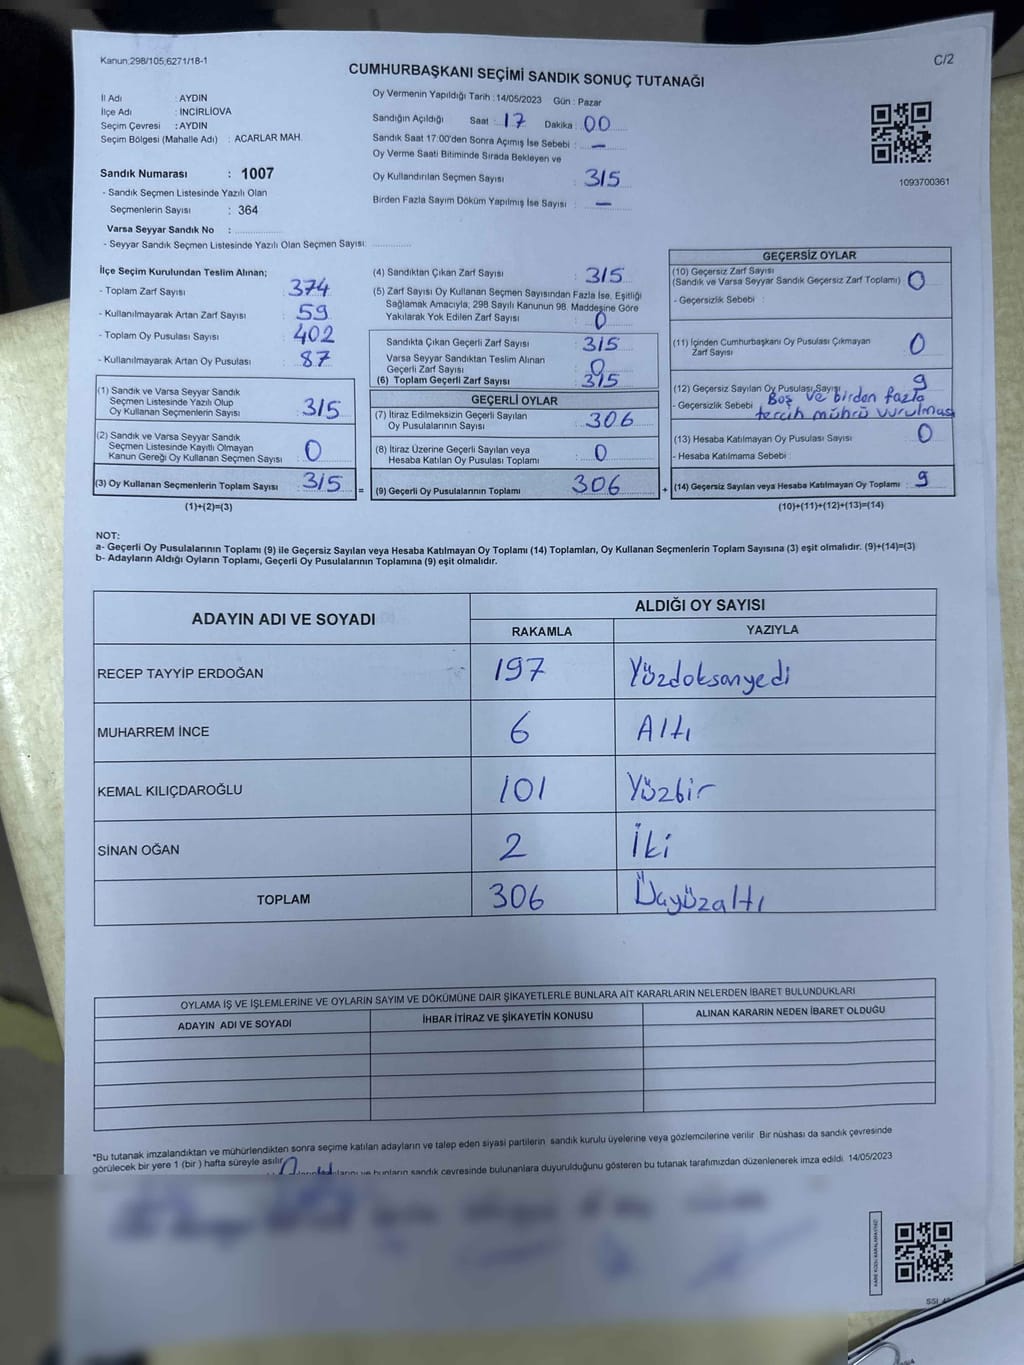 Kanun;298/105,6271/18-1
C/2
CUMHURBAŞKANI SEÇİMİ SANDIK SONUÇ TUTANAĞI
İl Adı : AYDIN
İlçe Adı : İNCİRLİOVA
Seçim Çevresi : AYDIN
Seçim Bölgesi (Mahalle Adı) : ACARLAR MAH.
Sandık Numarası : 1007
- Sandık Seçmen Listesinde Yazılı Olan
Seçmenlerin Sayısı : 364
Varsa Seyyar Sandık No :
- Seyyar Sandık Seçmen Listesinde Yazılı Olan Seçmen Sayısı:
Oy Vermenin Yapıldığı Tarih : 14/05/2023 Gün : Pazar
Sandığın Açıldığı Saat : 17 Dakika : 00
Sandık Saat 17:00'den Sonra Açımış İse Sebebi : —
Oy Verme Saati Bitiminde Sırada Bekleyen ve
Oy Kullandırılan Seçmen Sayısı : 315
Birden Fazla Sayım Döküm Yapılmış İse Sayısı : —
1093700361
İlçe Seçim Kurulundan Teslim Alınan;
- Toplam Zarf Sayısı : 374
- Kullanılmayarak Artan Zarf Sayısı : 59
- Toplam Oy Pusulası Sayısı : 402
- Kullanılmayarak Artan Oy Pusulası : 87
(1) Sandık ve Varsa Seyyar Sandık
Seçmen Listesinde Yazılı Olup
Oy Kullanan Seçmenlerin Sayısı : 315
(2) Sandık ve Varsa Seyyar Sandık
Seçmen Listesinde Kayıtlı Olmayan
Kanun Gereği Oy Kullanan Seçmen Sayısı : 0
(3) Oy Kullanan Seçmenlerin Toplam Sayısı : 315 =
(1)+(2)=(3)
(4) Sandıktan Çıkan Zarf Sayısı : 315
(5) Zarf Sayısı Oy Kullanan Seçmen Sayısından Fazla İse, Eşitliği
Sağlamak Amacıyla; 298 Sayılı Kanunun 98. Maddesine Göre
Yakılarak Yok Edilen Zarf Sayısı : 0
Sandıkta Çıkan Geçerli Zarf Sayısı : 315
Varsa Seyyar Sandıktan Teslim Alınan
Geçerli Zarf Sayısı : 0
(6) Toplam Geçerli Zarf Sayısı : 315
GEÇERLİ OYLAR
(7) İtiraz Edilmeksizin Geçerli Sayılan
Oy Pusulalarının Sayısı : 306
(8) İtiraz Üzerine Geçerli Sayılan veya
Hesaba Katılan Oy Pusulası Toplamı : 0
(9) Geçerli Oy Pusulalarının Toplamı : 306 +
GEÇERSİZ OYLAR
(10) Geçersiz Zarf Sayısı
(Sandık ve Varsa Seyyar Sandık Geçersiz Zarf Toplamı) : 0
- Geçersizlik Sebebi :
(11) İçinden Cumhurbaşkanı Oy Pusulası Çıkmayan
Zarf Sayısı : 0
(12) Geçersiz Sayılan Oy Pusulası Sayısı : 9
- Geçersizlik Sebebi : Boş ve birden fazla
tercih mührü vurulması
(13) Hesaba Katılmayan Oy Pusulası Sayısı : 0
- Hesaba Katılmama Sebebi :
(14) Geçersiz Sayılan veya Hesaba Katılmayan Oy Toplamı : 9
(10)+(11)+(12)+(13)=(14)
NOT:
a- Geçerli Oy Pusulalarının Toplamı (9) ile Geçersiz Sayılan veya Hesaba Katılmayan Oy Toplamı (14) Toplamları, Oy Kullanan Seçmenlerin Toplam Sayısına (3) eşit olmalıdır. (9)+(14)=(3)
b- Adayların Aldığı Oyların Toplamı, Geçerli Oy Pusulalarının Toplamına (9) eşit olmalıdır.
ADAYIN ADI VE SOYADI
ALDIĞI OY SAYISI
RAKAMLA YAZIYLA
RECEP TAYYİP ERDOĞAN 197 Yüzdoksanyedi
MUHARREM İNCE 6 Altı
KEMAL KILIÇDAROĞLU 101 Yüzbir
SİNAN OĞAN 2 İki
TOPLAM 306 Üçyüzaltı
OYLAMA İŞ VE İŞLEMLERİNE VE OYLARIN SAYIM VE DÖKÜMÜNE DAİR ŞİKAYETLERLE BUNLARA AİT KARARLARIN NELERDEN İBARET BULUNDUKLARI
ADAYIN ADI VE SOYADI İHBAR İTİRAZ VE ŞİKAYETİN KONUSU ALINAN KARARIN NEDEN İBARET OLDUĞU
*Bu tutanak imzalandıktan ve mühürlendikten sonra seçime katılan adayların ve talep eden siyasi partilerin sandık kurulu üyelerine veya gözlemcilerine verilir. Bir nüshası da sandık çevresinde
görülecek bir yere 1 (bir) hafta süreyle asılır.
ve bunların sandık çevresinde bulunanlara duyurulduğunu gösteren bu tutanak tarafımızdan düzenlenerek imza edildi. 14/05/2023